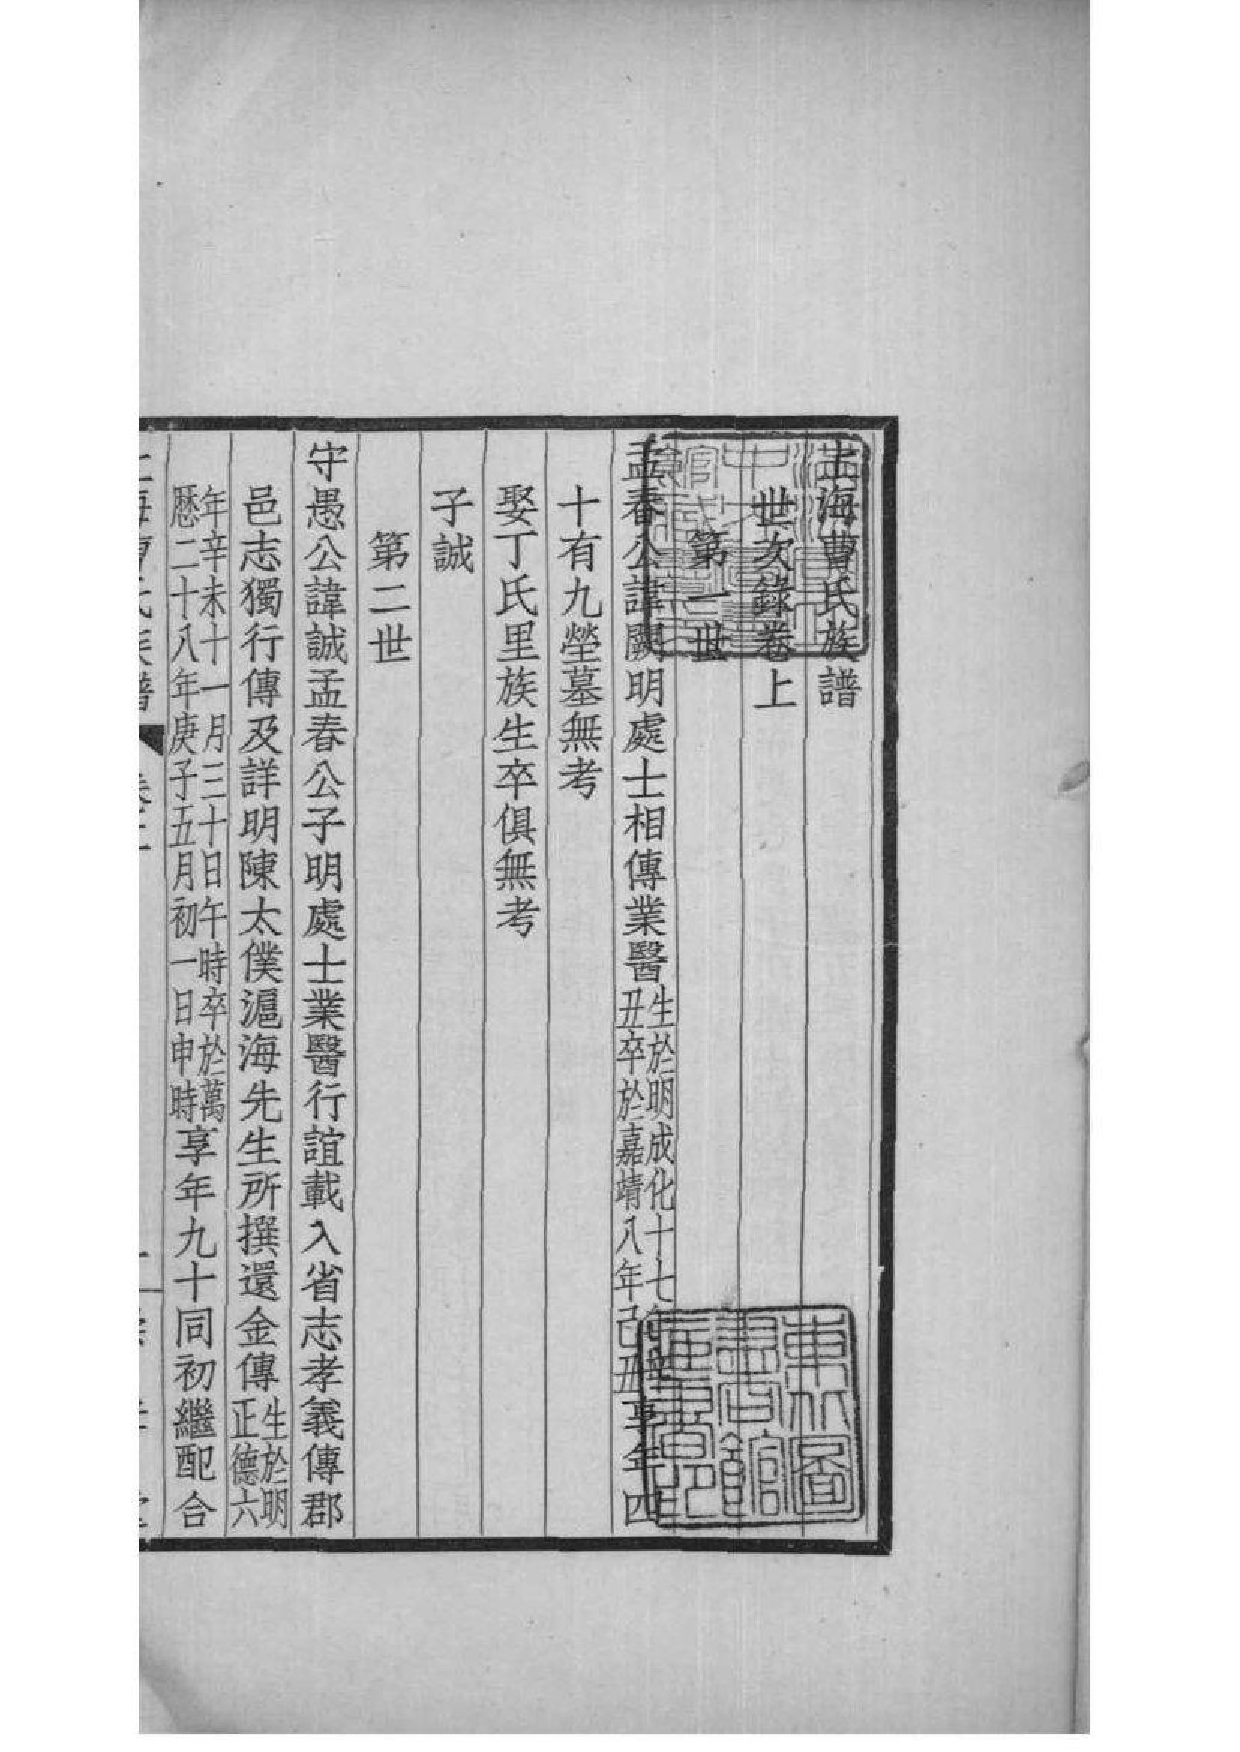 上海曹氏族譜
世次錄卷上
第一世
孟春公諱闕明處士相傳業醫生於明成化十七年辛丑卒於嘉靖八年己丑享年四
十有九塋墓無考
娶丁氏里族生卒俱無考
子誠
第二世
守愚公諱誠孟春公子明處士業醫行誼載入省志孝義傳郡
邑志獨行傳及詳明陳太僕滬海先生所撰還金傳生於明正德六
年辛未十一月三十日午時卒於萬曆二十八年庚子五月初一日申時享年九十同初繼配合